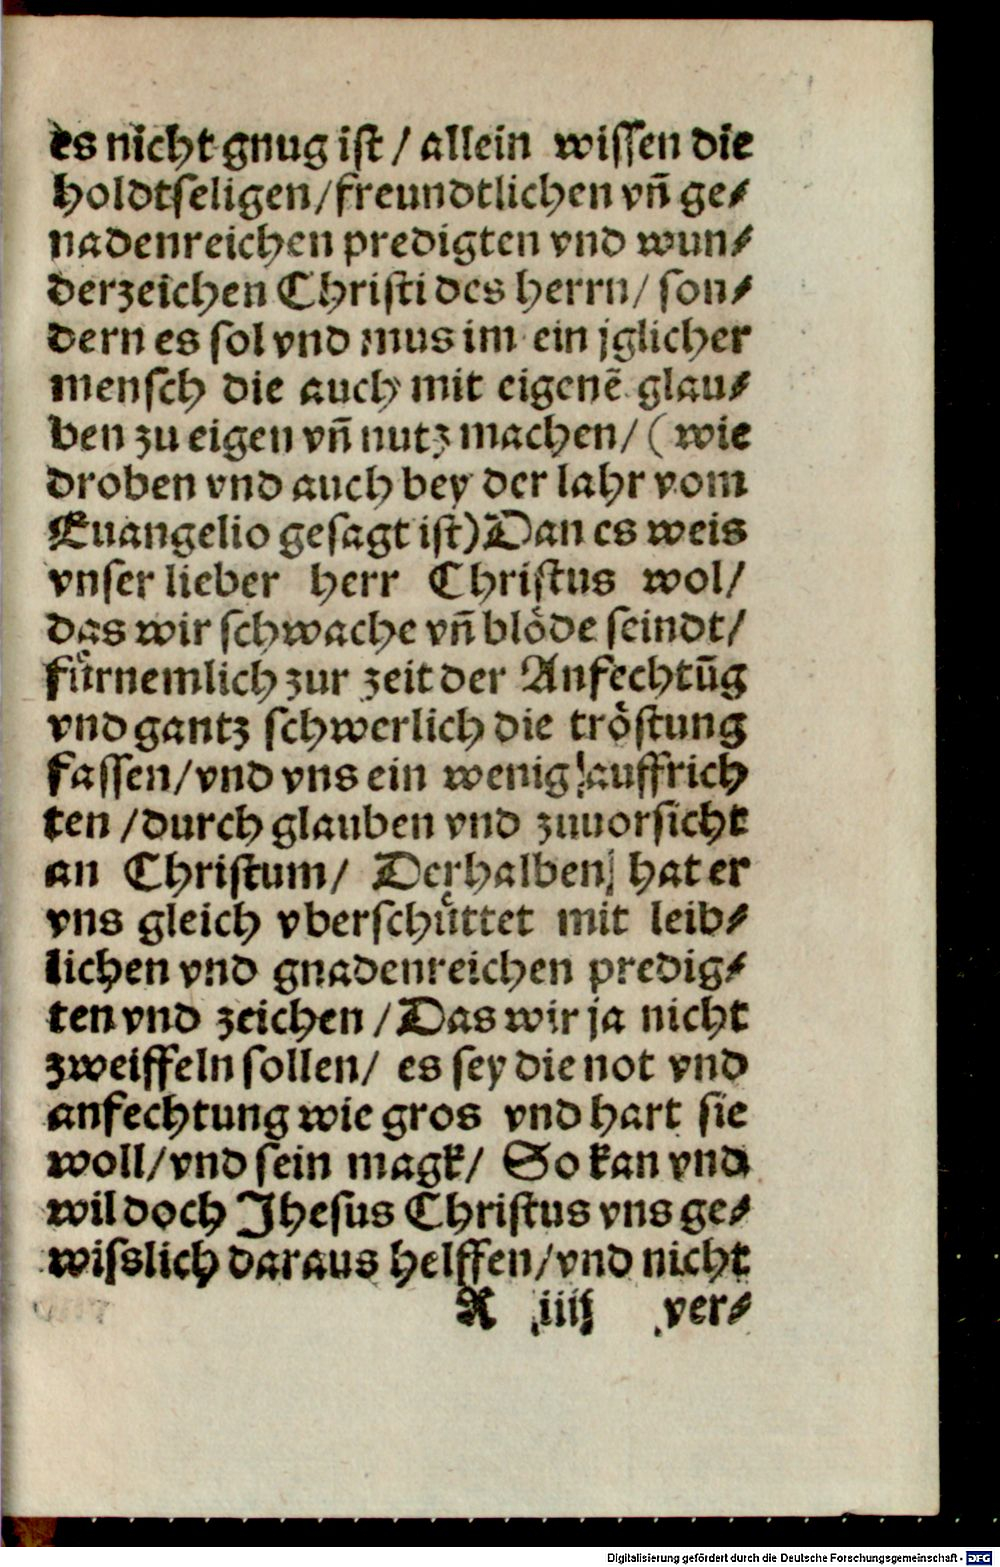 es nicht gnug ist / allein wissen die
holdtseligen/freundtlichen vn̄ ge⸗
nadenreichen predigten vnd wun⸗
derzeichen Christi des herrn/ son⸗
dern es sol vnd mus im ein jglicher
mensch die auch mit eigenē glau⸗
ben zu eigen vn̄ nutz machen/ ( wie
droben vnd auch bey der lahr vom
Euangelio gesagt ist) Dan es weis
vnser lieber herr Christus wol/
das wir schwache vn̄ blöde seindt/
fürnemlich zur zeit der Anfechtūg
vnd gantz schwerlich die tröstung
fassen/vnd vns ein wenig auffrich
ten /durch glauben vnd zuuorsicht
an Christum/ Derhalben hat er
vns gleich vberschüttet mit leib⸗
lichen vnd gnadenreichen predig⸗
ten vnd zeichen /Das wir ja nicht
zweiffeln sollen/ es sey die not vnd
anfechtung wie gros vnd hart sie
woll/vnd sein magk/ So kan vnd
wil doch Jhesus Christus vns ge⸗
wisslich daraus helffen/vnd nicht
R iiij ver⸗
Digitalisierung gefördert durch die Deutsche Forschungsgemeinschaft - DFG